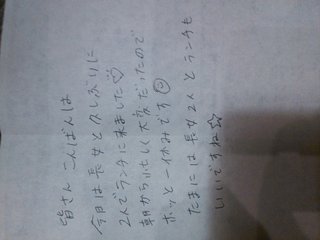 皆さん こんばんは
今日は長女と久しぶりに
2人でランチに来ました♡
朝から忙しく大変だったので
ホッと一休みです☺
たまには長女と2人でランチも
いいですね☆